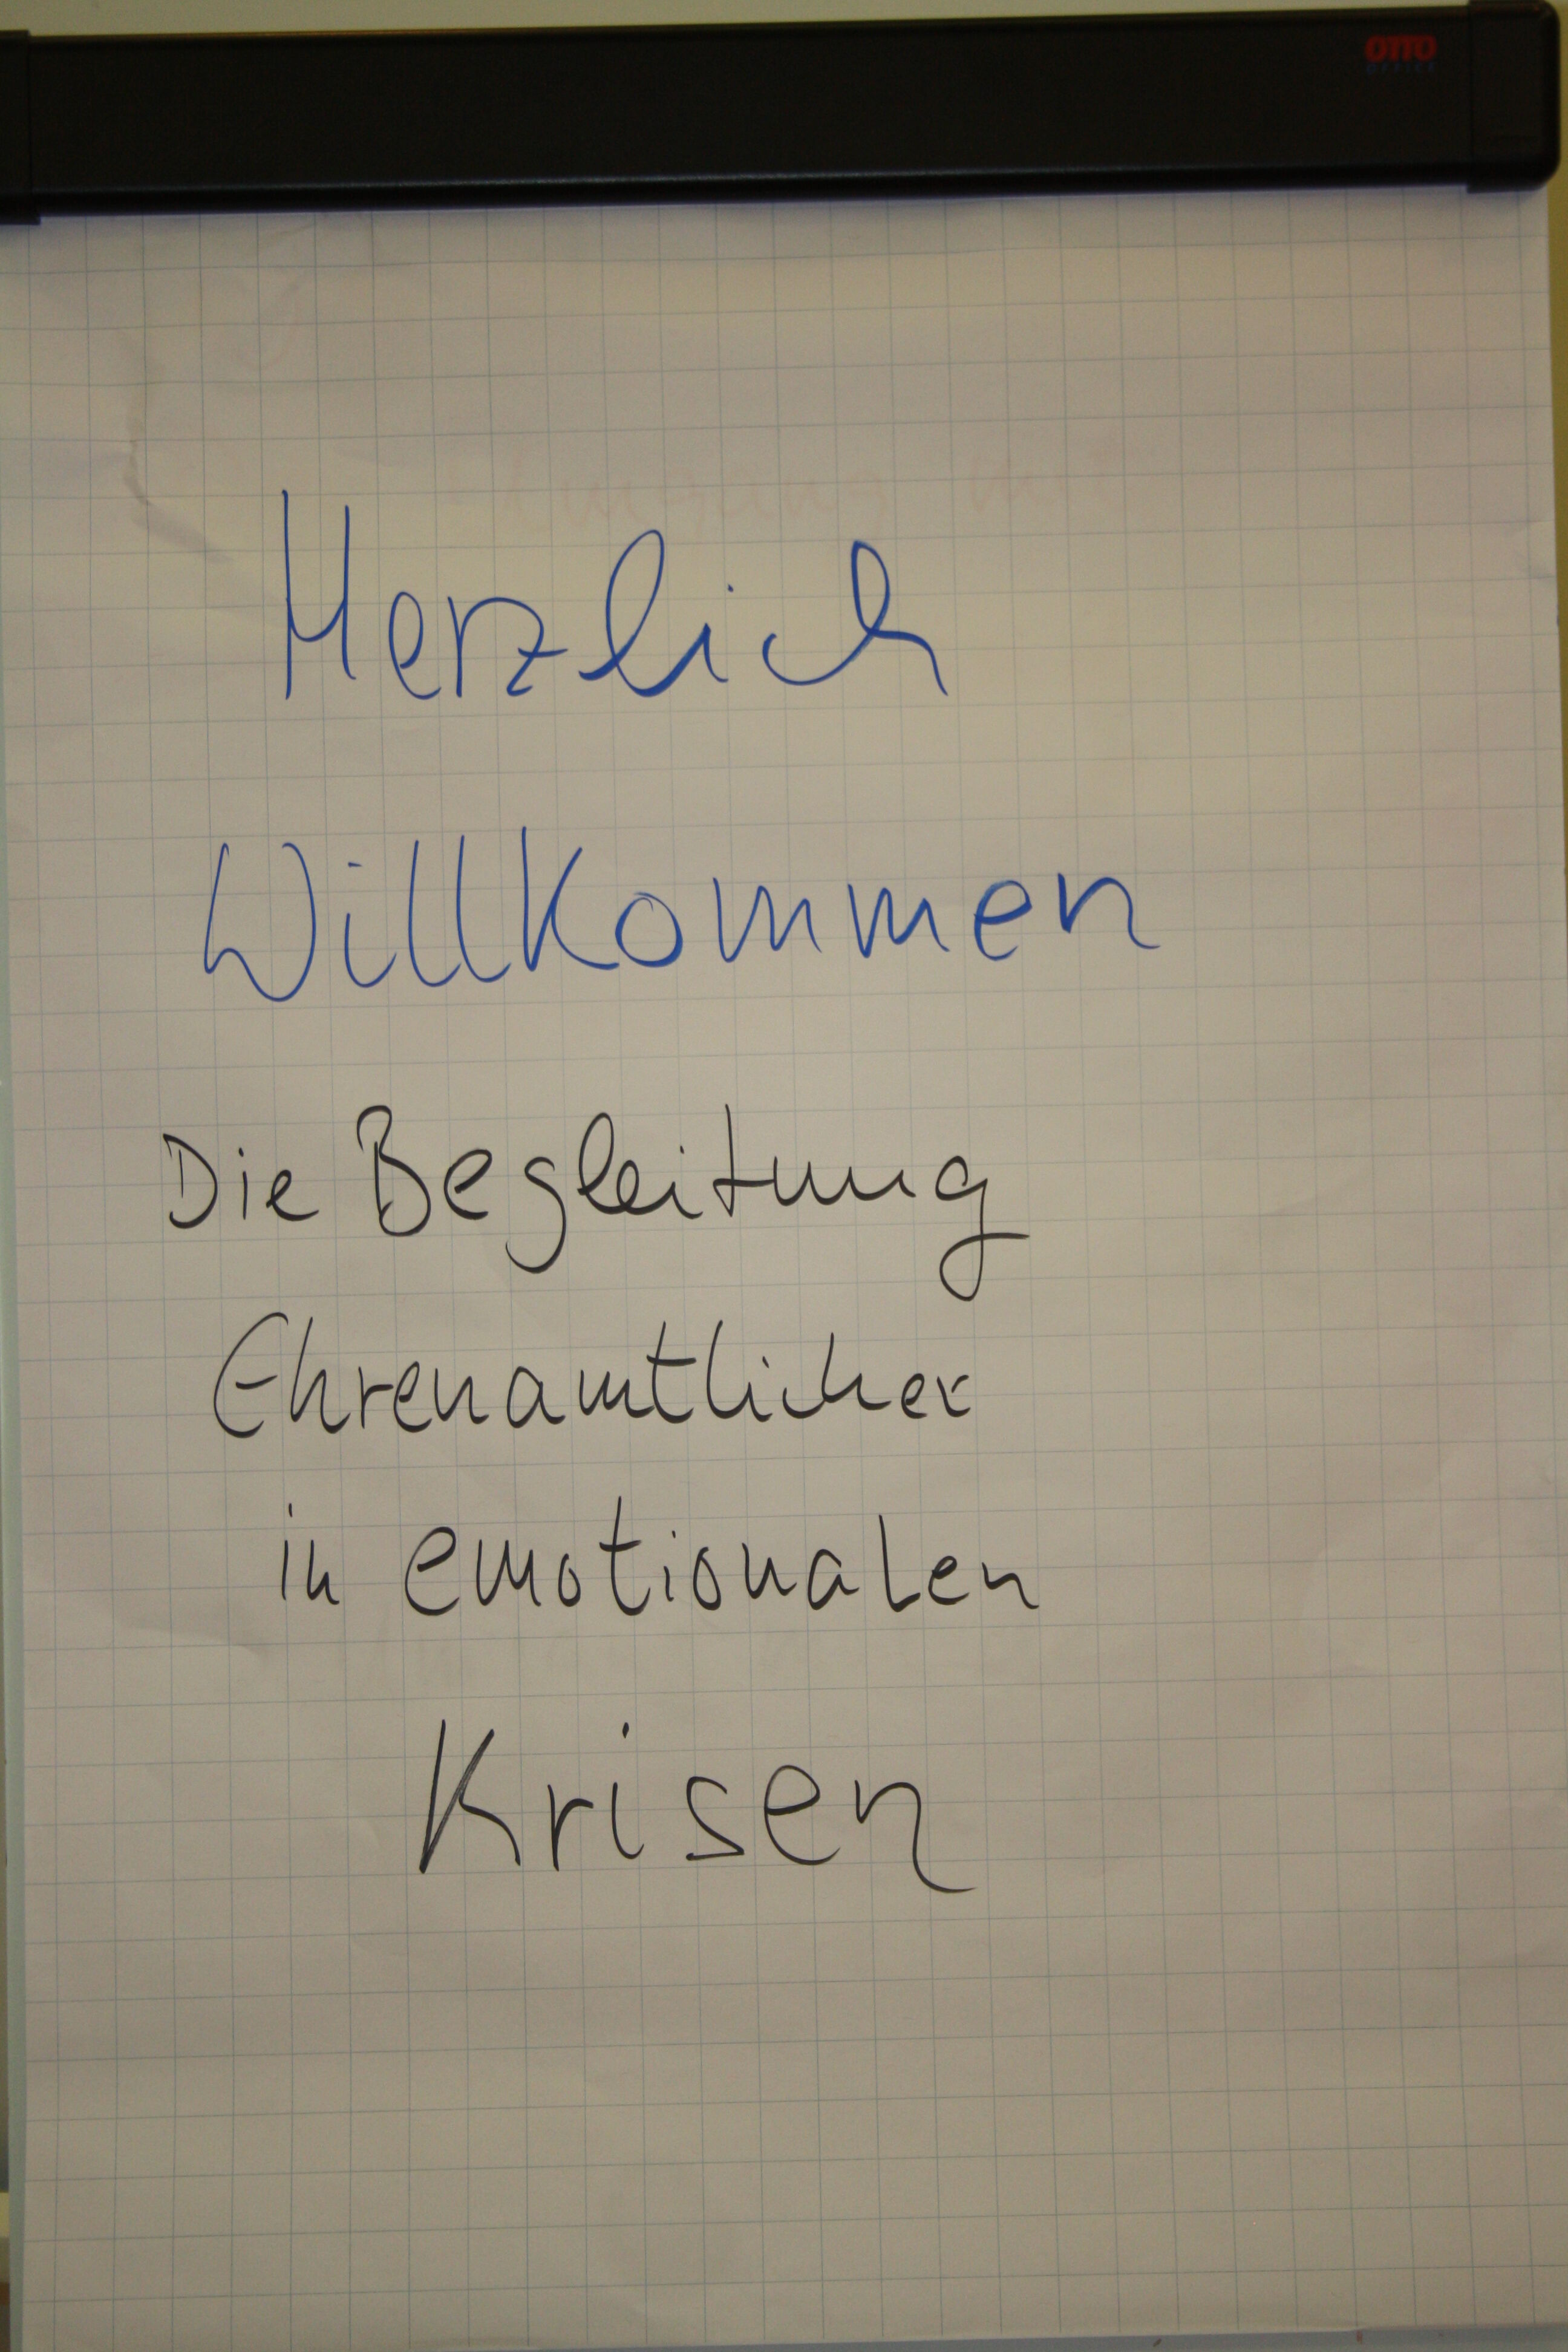 OTTO
OFFICE
Herzlich
Willkommen
Die Begleitung
Ehrenamtlicher
in emotionalen
Krisen